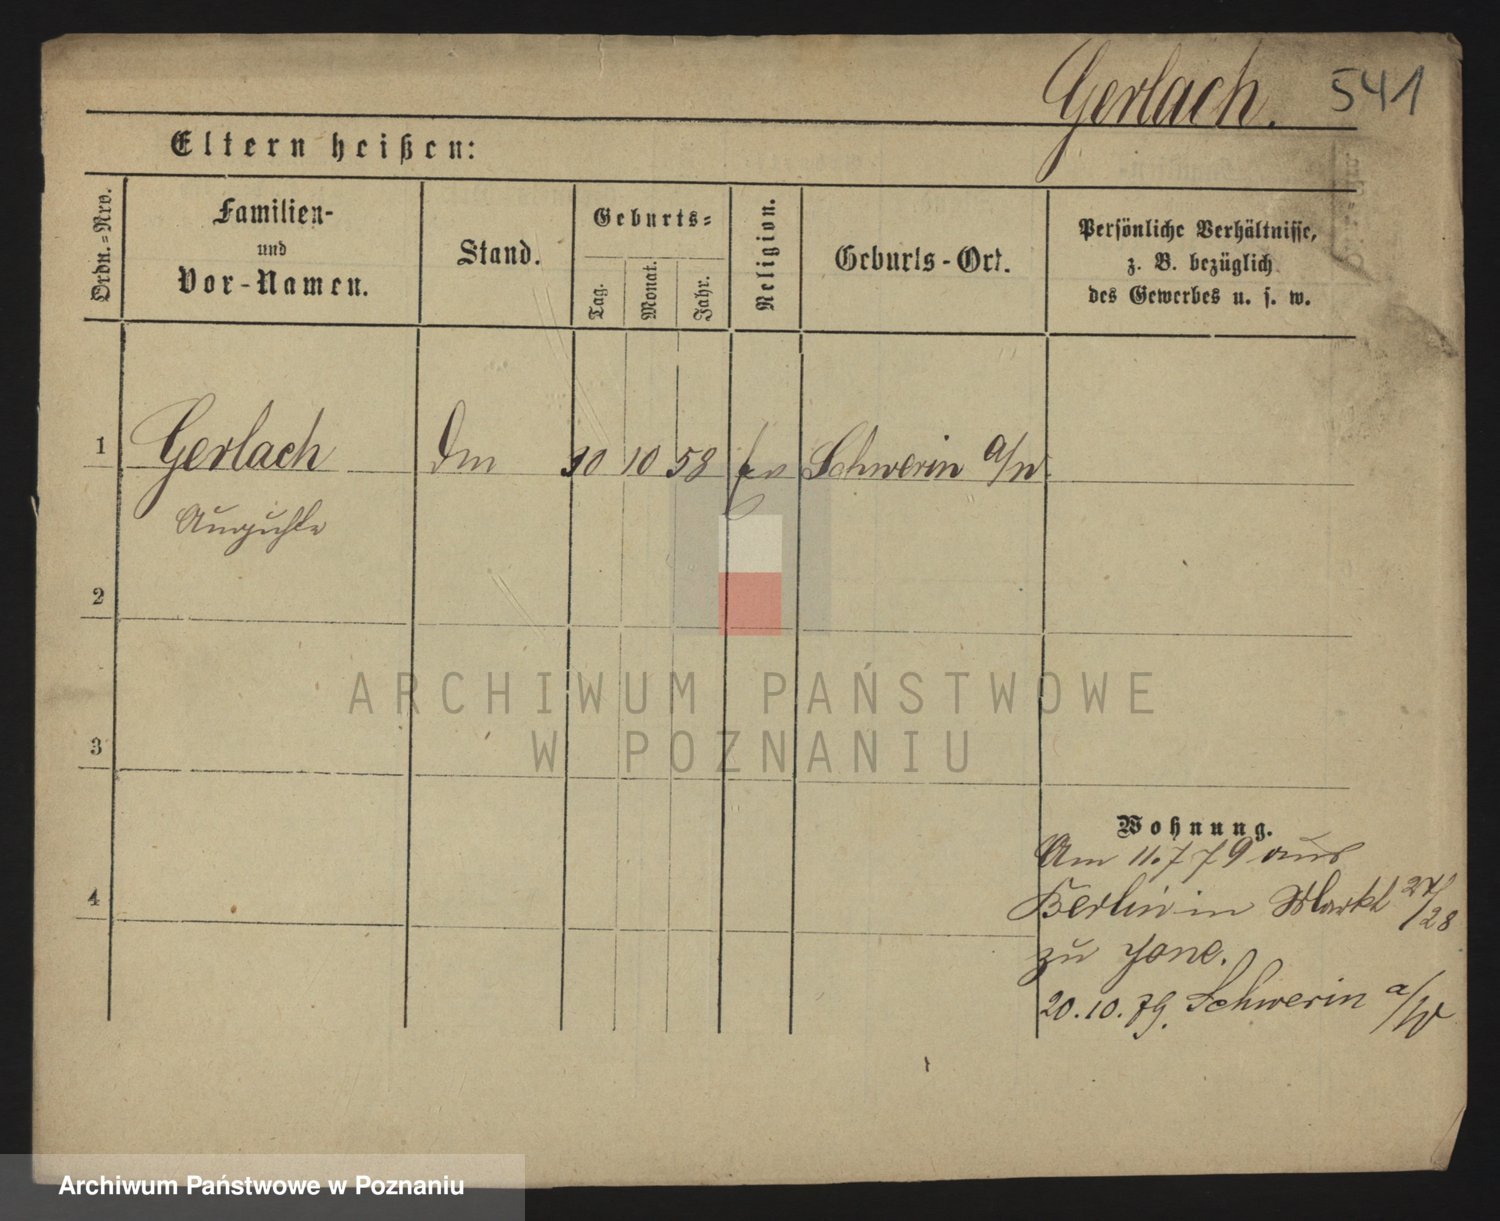 Gerlach. 541
Eltern heißen:
Ordn.=Nro.
Familien-
und
Vor-Namen.
Stand.
Geburts=
Tag.
Monat.
Jahr.
Religion.
Geburts-Ort.
Persönliche Verhältnisse,
z. B. bezüglich
des Gewerbes u. s. w.
1 Gerlach 10 10 58 ev Schwerin a/W.
Auguste
2
3
4
Wohnung.
Am 11.7 79 aus
Berlin in Markt 27/28
zu
20.10.79. Schwerin a/W
ARCHIWUM PAŃSTWOWE
W POZNANIU
Archiwum Państwowe w Poznaniu